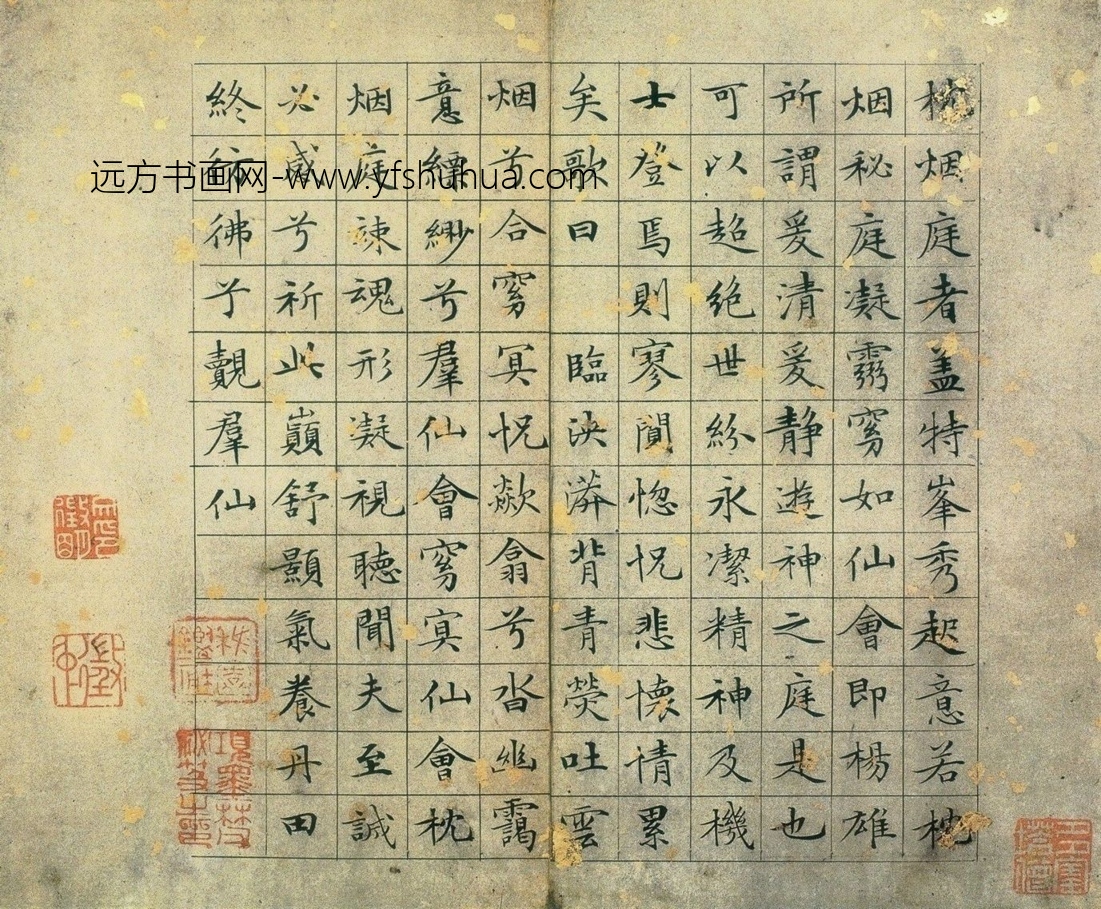 枕烟庭者盖特峯秀起意若枕
烟秘庭凝靈窈如仙會即楊雄
所謂爰清爰静遊神之庭是也
可以超絶世紛永潔精神及機
士登焉則寥閴惚怳悲懷情累
矣歌曰 臨泱漭背青熒吐雲
烟兮合窈冥怳歘翕兮沓幽靄
意縹緲兮羣仙會窈冥仙會枕
烟庭竦魂形凝視聽聞夫至誠
必感兮祈此巔舒顥氣養丹田
終彷彿兮覿羣仙
远方书画网-www.yfshuhua.com